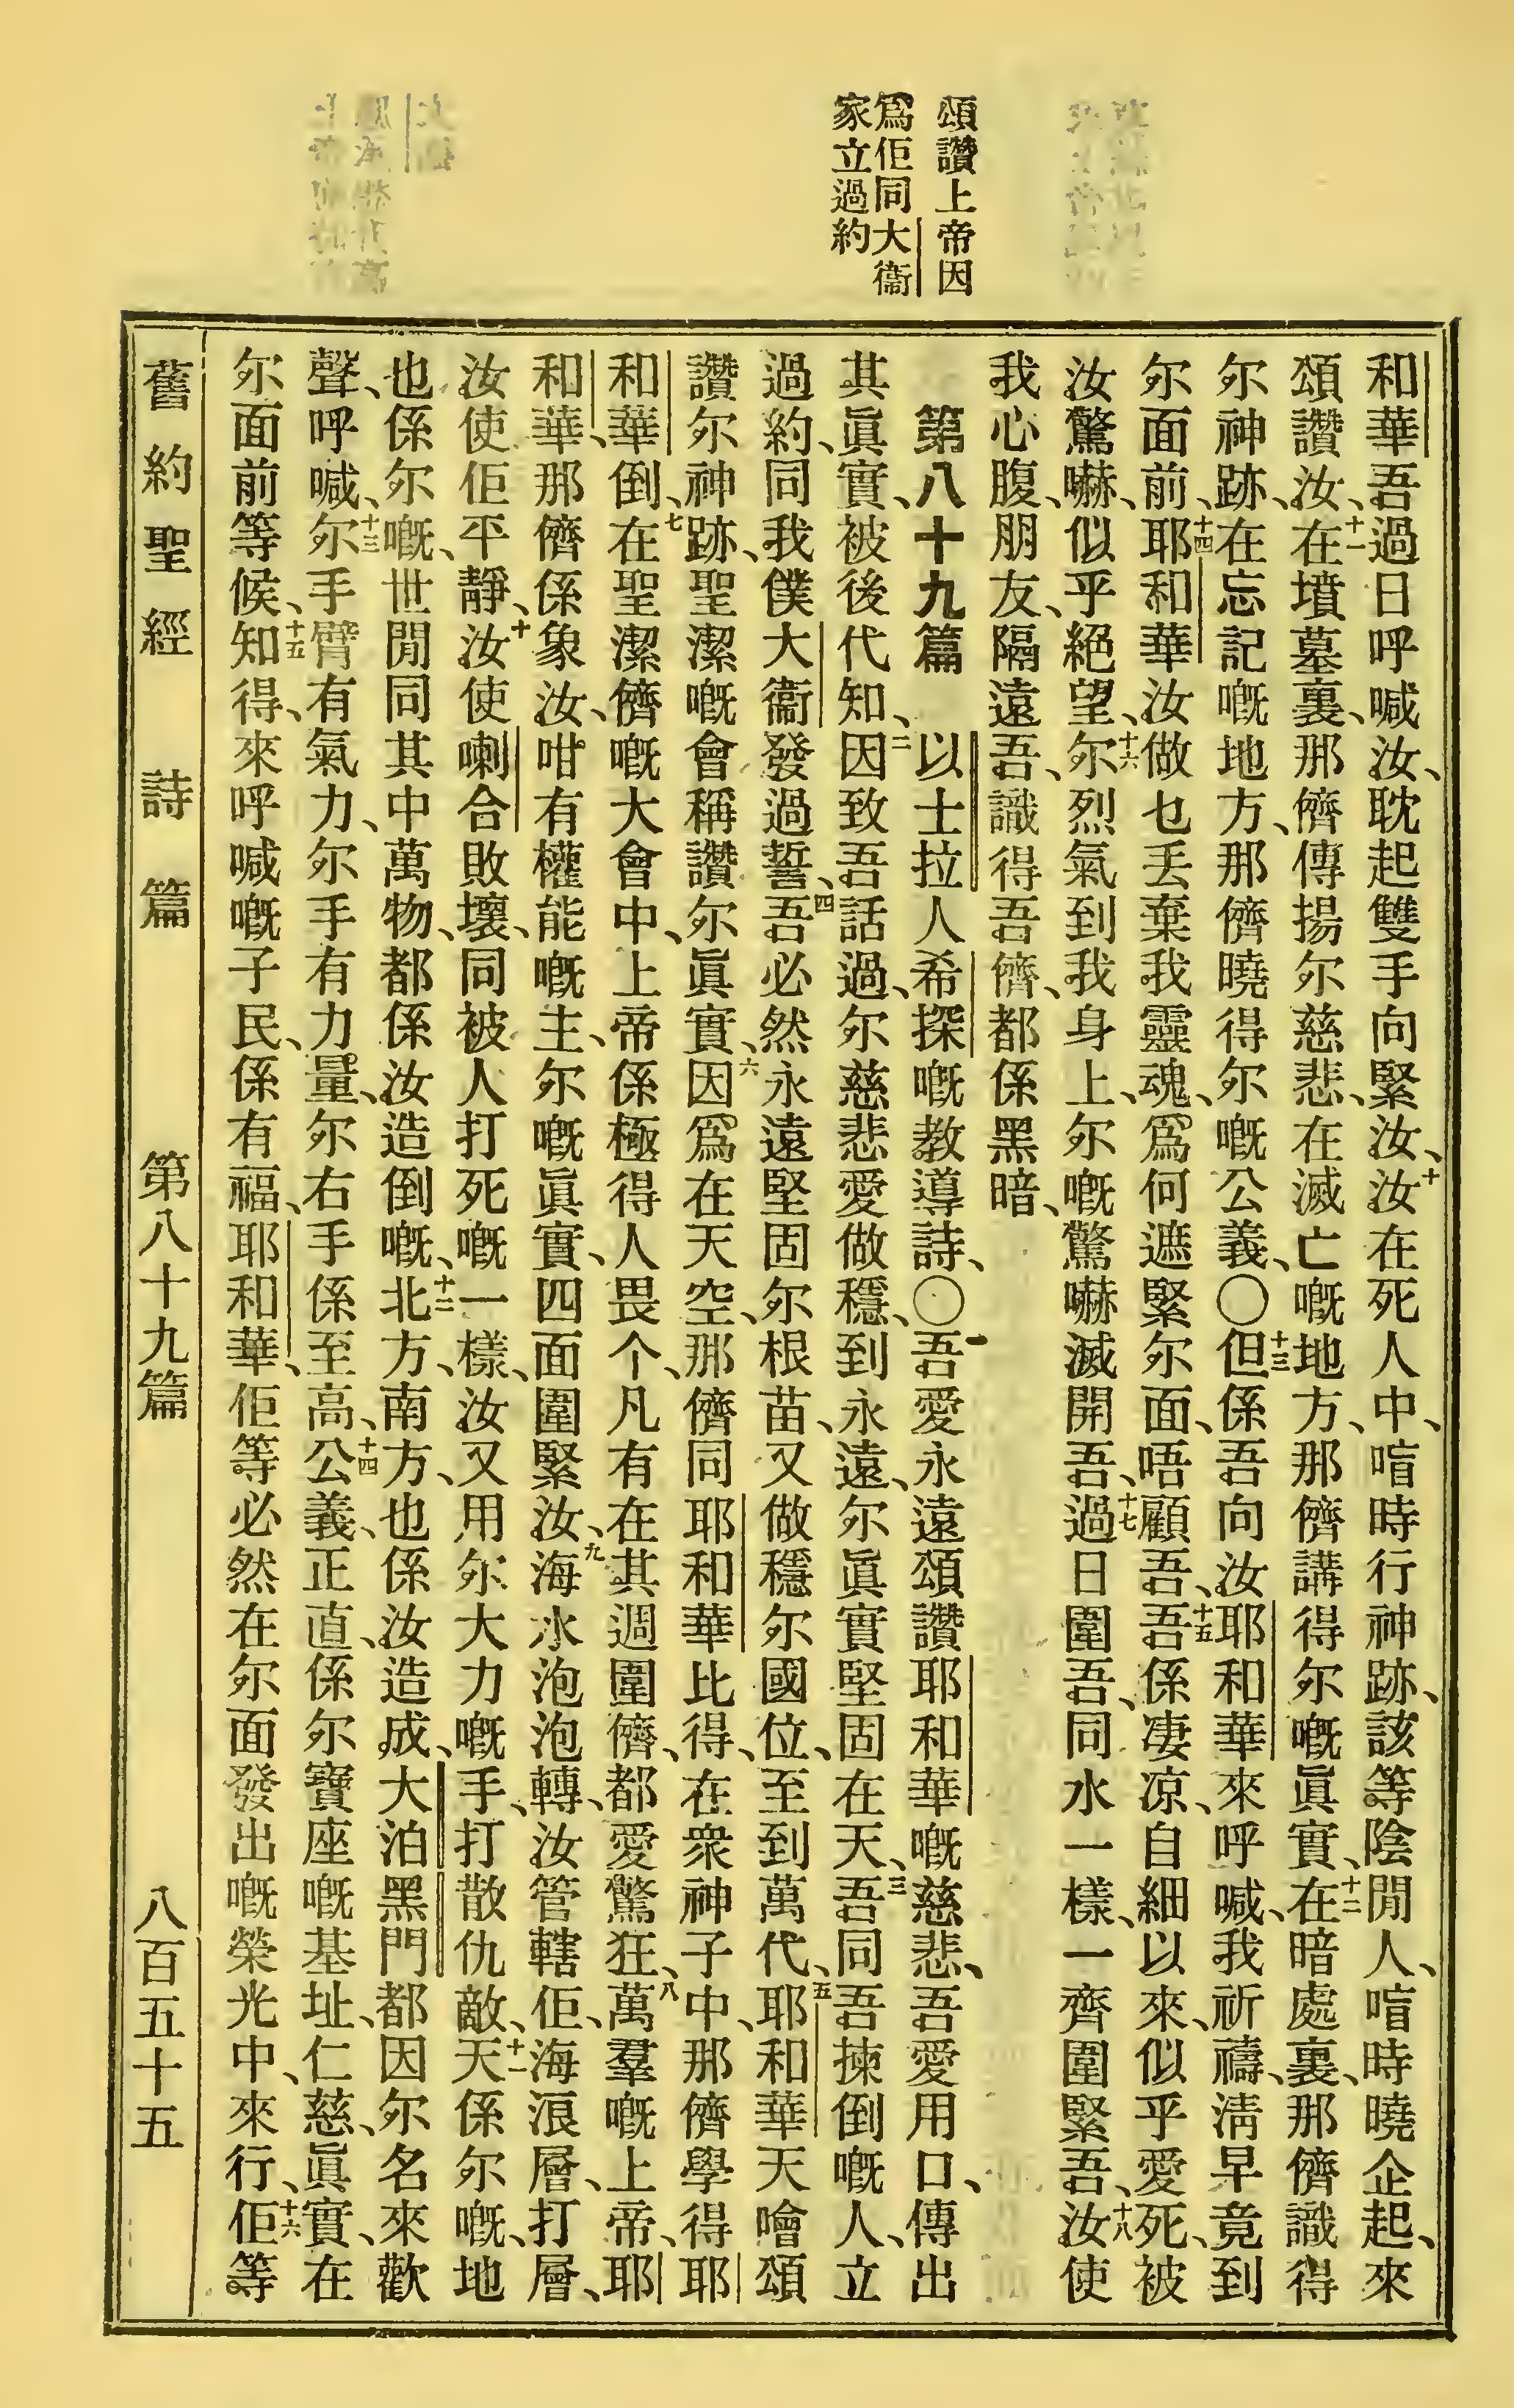 頌讚上帝因
爲佢同大衞
家立過約
和華吾過日呼喊汝、耽起雙手向緊汝、十汝在死人中、喑時行神跡、該等陰閒人、喑時曉企起、來
頌讚汝、十一在墳墓裏、那儕傳揚尔慈悲、在滅亡嘅地方、那儕講得尔嘅眞實、十二在暗處裏、那儕識得
尔神跡、在忘記嘅地方、那儕曉得尔嘅公義、〇十三但係吾向汝耶和華來呼喊、我祈禱、淸早竟到
尔面前、十四耶和華汝做乜丢棄我靈魂、爲何遮緊尔面、唔顧吾、十五吾係淒凉、自細以來、似乎愛死、被
汝驚嚇、似乎絕望、十六尔烈氣到我身上、尔嘅驚嚇滅開吾、十七過日圍吾、同水一樣、一齊圍緊吾、十八汝使
我心腹、朋友、隔遠吾、識得吾儕、都係黑暗、
第八十九篇　以士拉人希探嘅教導詩、〇一吾愛永遠頌讚耶和華嘅慈悲、吾愛用口、傳出
其眞實、被後代知、二因致吾話過、尔慈悲愛做穩、到永遠、尔眞實堅固在天、三吾同吾揀倒嘅人、立
過約、同我僕大衞發過誓、四吾必然永遠堅固尔根苗、又做穩尔國位、至到萬代、五耶和華天噲頌
讚尔神跡、聖潔嘅會稱讚尔眞實、六因爲在天空、那儕同耶和華比得、在衆神子中、那儕學得耶
和華倒、七在聖潔儕嘅大會中、上帝係極得人畏个、凡有在其週圍儕、都愛驚狂、八萬羣嘅上帝、耶
和華、那儕係象汝、咁有權能嘅主、尔嘅眞實、四面圍緊汝、九海水泡泡轉、汝管轄佢、海浪層、打層、
汝使佢平靜、十汝使喇合敗壞、同被人打死嘅一樣、汝又用尔大力嘅手、打散仇敵、十一天係尔嘅、地
也係尔嘅、世閒同其中萬物、都係汝造倒嘅、十二北方、南方、也係汝造成、大泊黑門都因尔名來歡
聲、呼喊、十三尔手臂有氣力、尔手有力量、尔右手係至高、十四公義、正直、係尔寶座嘅基址、仁慈、眞實、在
尔面前等候、十五知得、來呼喊嘅子民、係有福、耶和華、佢等必然在尔面發出嘅榮光中、來行、十六佢等
舊約聖經　詩篇　第八十九篇　八百五十五